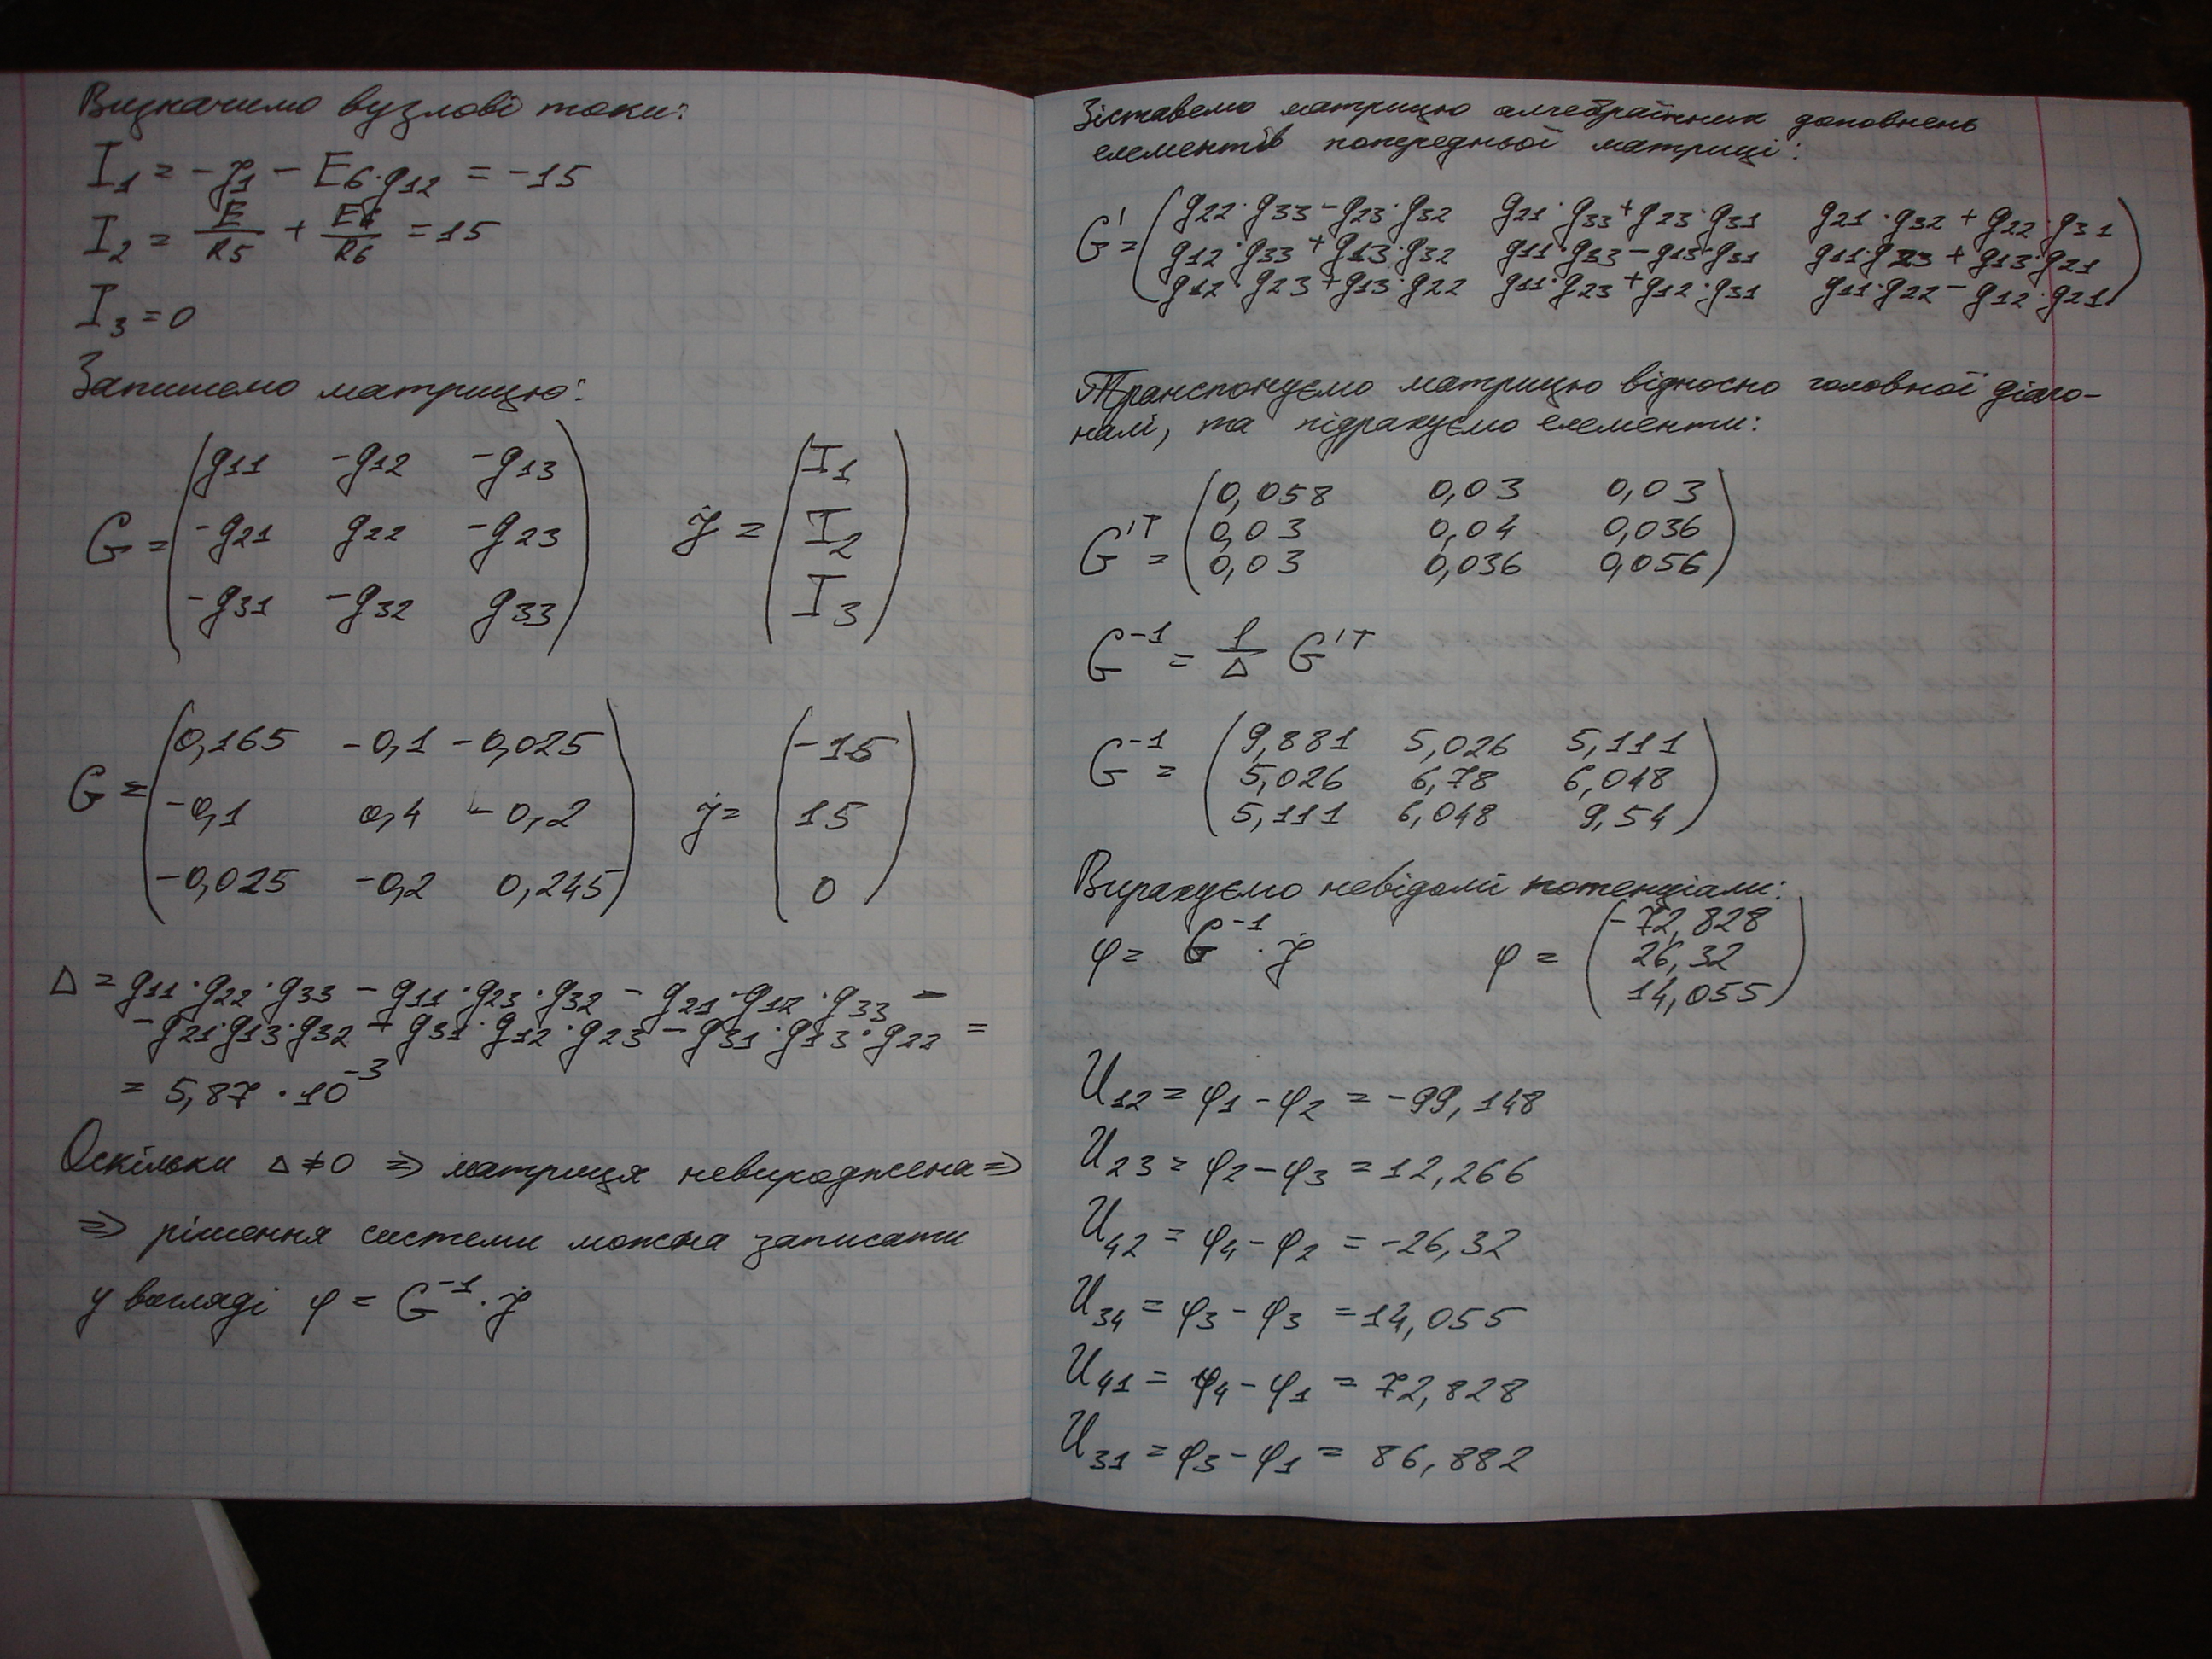 Визначимо вузлові токи:
I₁ = -J₁ - E₆·g₁₂ = -15
I₂ = E/R5 + E6/R6 = 15
I₃ = 0
Запишемо матрицю:
G = (g₁₁ -g₁₂ -g₁₃
-g₂₁ g₂₂ -g₂₃
-g₃₁ -g₃₂ g₃₃)
j = (I₁
I₂
I₃)
G = (0,165 -0,1 -0,025
-0,1 0,4 -0,2
-0,025 -0,2 0,245)
j = (-15
15
0)
Δ = g₁₁·g₂₂·g₃₃ - g₁₁·g₂₃·g₃₂ - g₂₁·g₁₂·g₃₃ -
- g₂₁·g₁₃·g₃₂ - g₃₁·g₁₂·g₂₃ - g₃₁·g₁₃·g₂₂ =
= 5,87 · 10⁻³
Оскільки Δ ≠ 0 ⇒ матриця невироджена ⇒
⇒ рішення системи можна записати
у вигляді φ = G⁻¹ · j
Зіставемо матрицю алгебраїчних доповнень
елементів попередньої матриці:
G' = (g₂₂·g₃₃ - g₂₃·g₃₂ g₂₁·g₃₃ + g₂₃·g₃₁ g₂₁·g₃₂ + g₂₂·g₃₁
g₁₂·g₃₃ + g₁₃·g₃₂ g₁₁·g₃₃ - g₁₃·g₃₁ g₁₁·g₂₃ + g₁₃·g₂₁
g₁₂·g₂₃ + g₁₃·g₂₂ g₁₁·g₂₃ + g₁₂·g₃₁ g₁₁·g₂₂ - g₁₂·g₂₁)
Транспонуємо матрицю відносно головної діаго-
налі, та підрахуємо елементи:
G'ᵀ = (0,058 0,03 0,03
0,03 0,04 0,036
0,03 0,036 0,056)
G⁻¹ = 1/Δ G'ᵀ
G⁻¹ = (9,881 5,026 5,111
5,026 6,78 6,048
5,111 6,048 9,54)
Вирахуємо невідомі потенціали:
φ = G⁻¹ · j
φ = (-72,828
26,32
14,055)
U₁₂ = φ₁ - φ₂ = -99,148
U₂₃ = φ₂ - φ₃ = 12,266
U₄₂ = φ₄ - φ₂ = -26,32
U₃₄ = φ₃ - φ₃ = 14,055
U₄₁ = φ₄ - φ₁ = 72,828
U₃₁ = φ₃ - φ₁ = 86,882